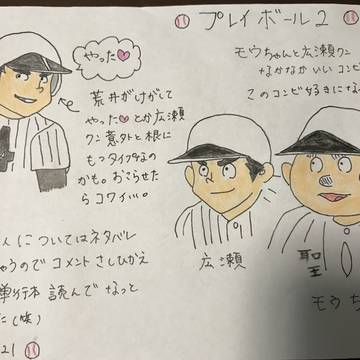 プレイボール2
やった♡
モウちゃんと広瀬クン
なかなかいいコンビ
このコンビ好きにな
荒井がけがして
やった♡とか広瀬
クン意外と根に
もつタイプなの
かも。おこらせた
らコワイ…。
広瀬
聖
モウち
人についてはネタバレ
ちゃうので コメントさしひかえ
単行本 読んでなっと
た(笑)
21